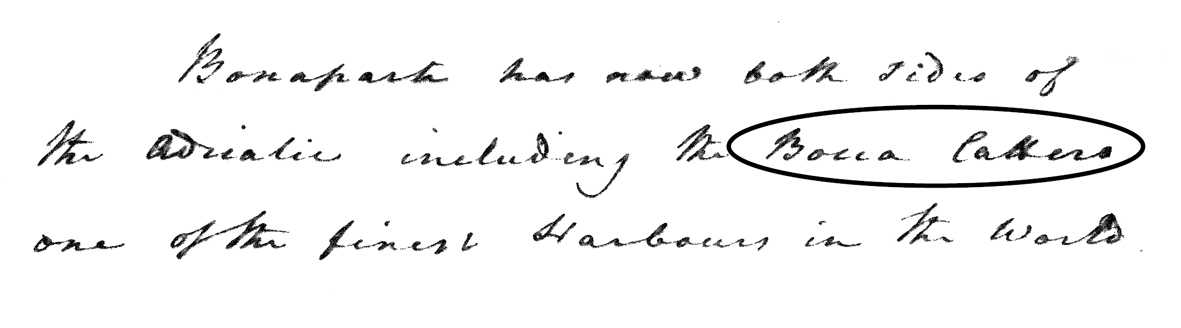 Bonaparte has now both sides of
the Adriatic including the Bocca Cattero
one of the finest Harbours in the World